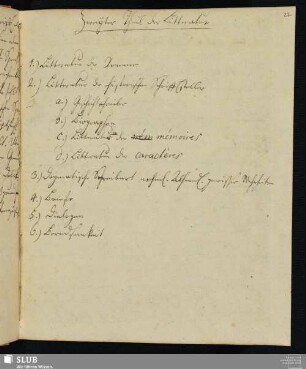 22.
Theil der Litteratur
1.) Litteratur der Romane
2.) Litteratur der historischen Schriftsteller
a.) Geschichtschreiber
b.) Biographen
c.) Litteratur der mémoires
d.) Litteratur der caractères
3.) Dogmatische Schreibart
4.) Briefe
5.) Dialogen
6.) Beredsamkeit
SLUB
Wir führen Wissen.